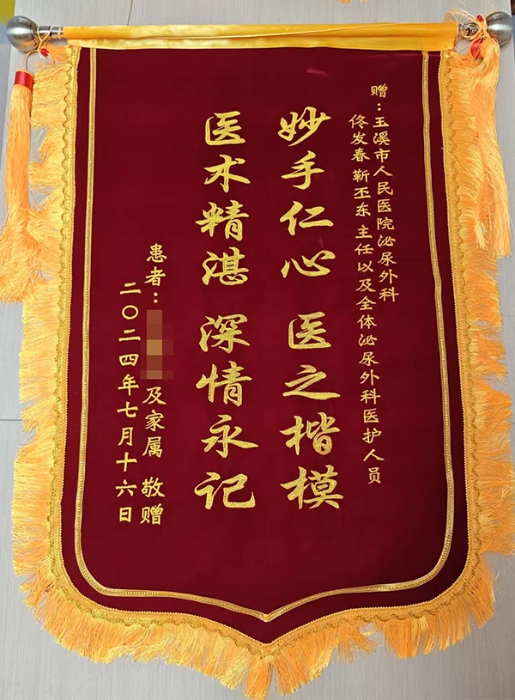 赠：玉溪市人民医院泌尿外科
佟发春 靳丕东 主任以及全体泌尿外科医护人员
妙手仁心 医之楷模
医术精湛 深情永记
患者： 及家属 敬赠
二〇二四年七月十六日